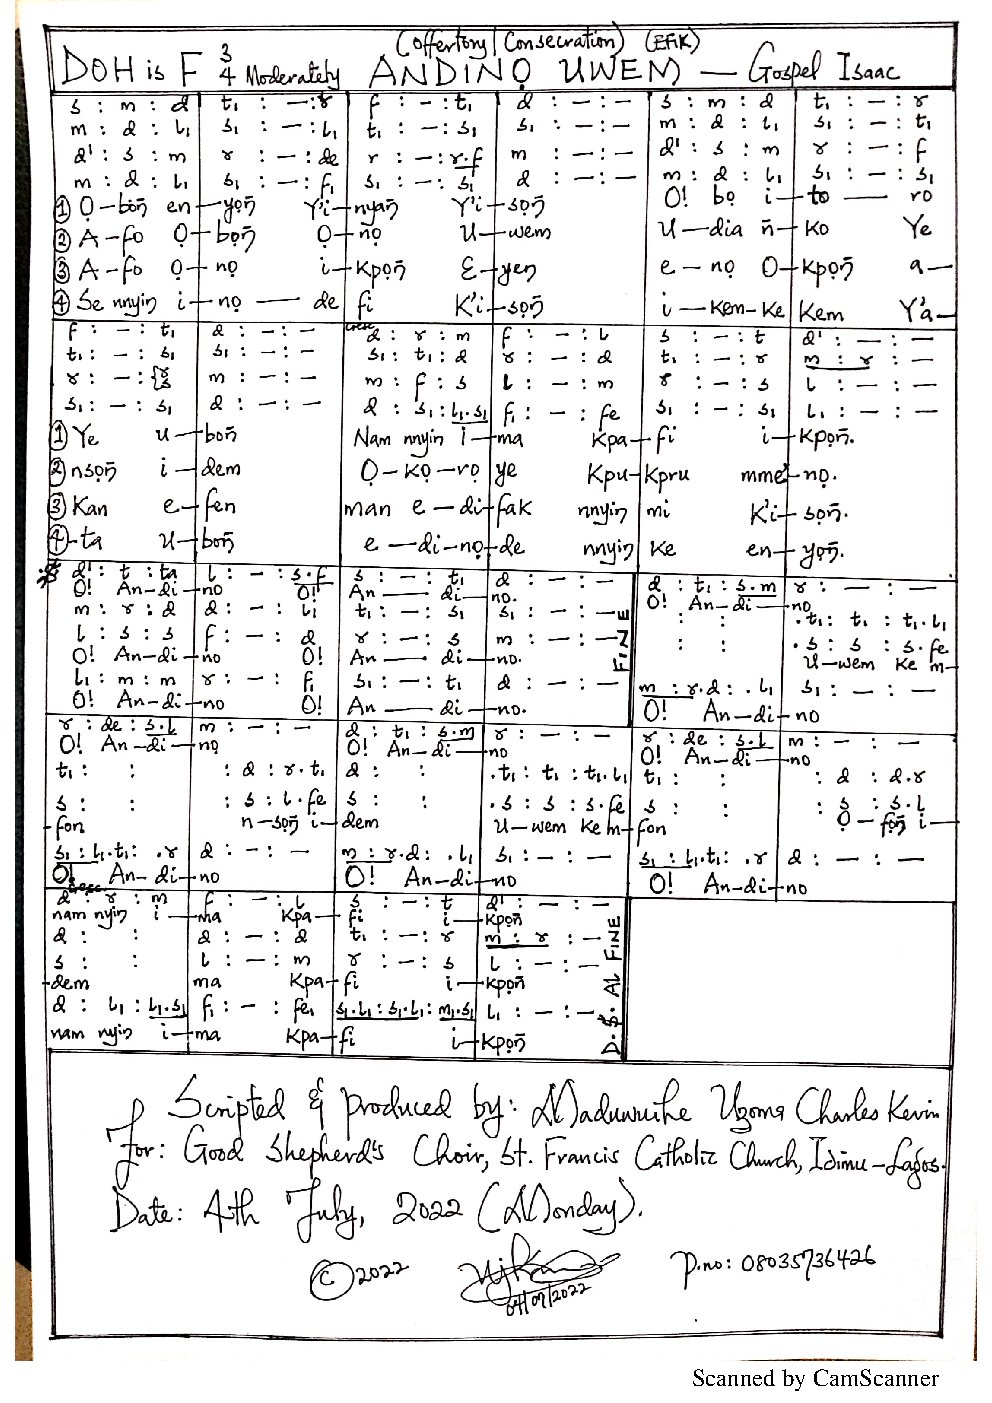 (Offertory | Consecration) (EFIK)
DOH is F 3/4 Moderately ANDINỌ UWEM — Gospel Isaac
s : m : d | t₁ : – : r | f : – : t₁ | d : – : – | s : m : d | t₁ : – : r
m : d : l₁ | s₁ : – : l₁ | t₁ : – : s₁ | s₁ : – : – | m : d : l₁ | s₁ : – : t₁
d' : s : m | r : – : de | r : – : r.f | m : – : – | d' : s : m | r : – : f
m : d : l₁ | s₁ : – : f₁ | s₁ : – : s₁ | d : – : – | m : d : l₁ | s₁ : – : s₁
① Ọ–boñ en–yọñ Y'i–nyañ Y'i–sọñ O! bọ i–to–ro
② A–fo Ọ–bọñ Ọ–nọ U–wem U–dia ñ–ko Ye
③ A–fo Ọ–nọ i–kpọñ E–yen e–nọ O–kpọñ a–
④ Se nnyin i–nọ–de fi K'i–sọñ i–kem–ke kem Y'a–
f : – : t₁ | d : – : – | cresc d : r : m | f : – : l | s : – : t | d' : – : –
t₁ : – : s₁ | s₁ : – : – | s₁ : t₁ : d | r : – : d | t₁ : – : r | m : r : –
r : – : {r s | m : – : – | m : f : s | l : – : m | r : – : s | l : – : –
s₁ : – : s₁ | d : – : – | d : s₁ : l₁.s₁ | f₁ : – : fe | s₁ : – : s₁ | l₁ : – : –
① Ye u–boñ Nam nnyin i–ma kpa–fi i–kpọñ.
② nsọñ i–dem Ọ–kọ–rọ ye kpu–kpru mme–nọ.
③ Kan e–fen man e–di–fak nnyin mi K'i–sọñ.
④ –ta u–boñ e–di–nọ–de nnyin ke en–yọñ.
d' : t : ta | l : – : s.f | s : – : t₁ | d : – : – | d : t₁ : s.m | r : – : –
O! An–di–no O! An–di–no. O! An–di–no
m : r : d | d : – : l₁ | t₁ : – : s₁ | s₁ : – : – FINE | : : | .t₁ : t₁ : t₁.l₁
l : s : s | f : – : d | r : – : s | m : – : – | : : | .s : s : s.fe
O! An–di–no O! An–di–no. U–wem ke m–
l₁ : m : m | r : – : f₁ | s₁ : – : t₁ | d : – : – | m : r.d : .l₁ | s₁ : – : –
O! An–di–no O! An–di–no. O! An–di–no
r : de : s.l | m : – : – | d : t₁ : s.m | r : – : – | r : de : s.l | m : – : –
O! An–di–nọ O! An–di–no O! An–di–no
t₁ : : | : d : r.t₁ | d : : | .t₁ : t₁ : t₁.l₁ | t₁ : : | : d : d.r
s : : | : s : l.fe | s : : | .s : s : s.fe | s : : | : s : s.l
–fon n–sọñ i–dem U–wem ke m–fon Ọ–fọñ i–
s₁ : l₁.t₁ : .r | d : – : – | m : r.d : .l₁ | s₁ : – : – | s₁ : l₁.t₁ : .r | d : – : –
O! An–di–no O! An–di–no O! An–di–no
cresc.
d : r : m | f : – : l | s : – : t | d' : – : –
nam nyin i–ma kpa–fi i–kpọñ
d : : | d : – : d | t₁ : – : r | m : r : –
s : : | l : – : m | r : – : s | l : – : –
–dem ma kpa–fi i–kpọñ
d : l₁ : l₁.s₁ | f₁ : – : fe₁ | s₁.l₁ : s₁.l₁ : m₁.s₁ | l₁ : – : –
nam nyin i–ma kpa–fi i–kpọñ
D.S. AL FINE
Scripted & produced by: Maduwuihe Ugoma Charles Kevin
for: Good Shepherd's Choir, St. Francis Catholic Church, Idimu–Lagos.
Date: 4th July, 2022 (Monday).
© 2022 04/07/2022 P.no: 08035736426
Scanned by CamScanner